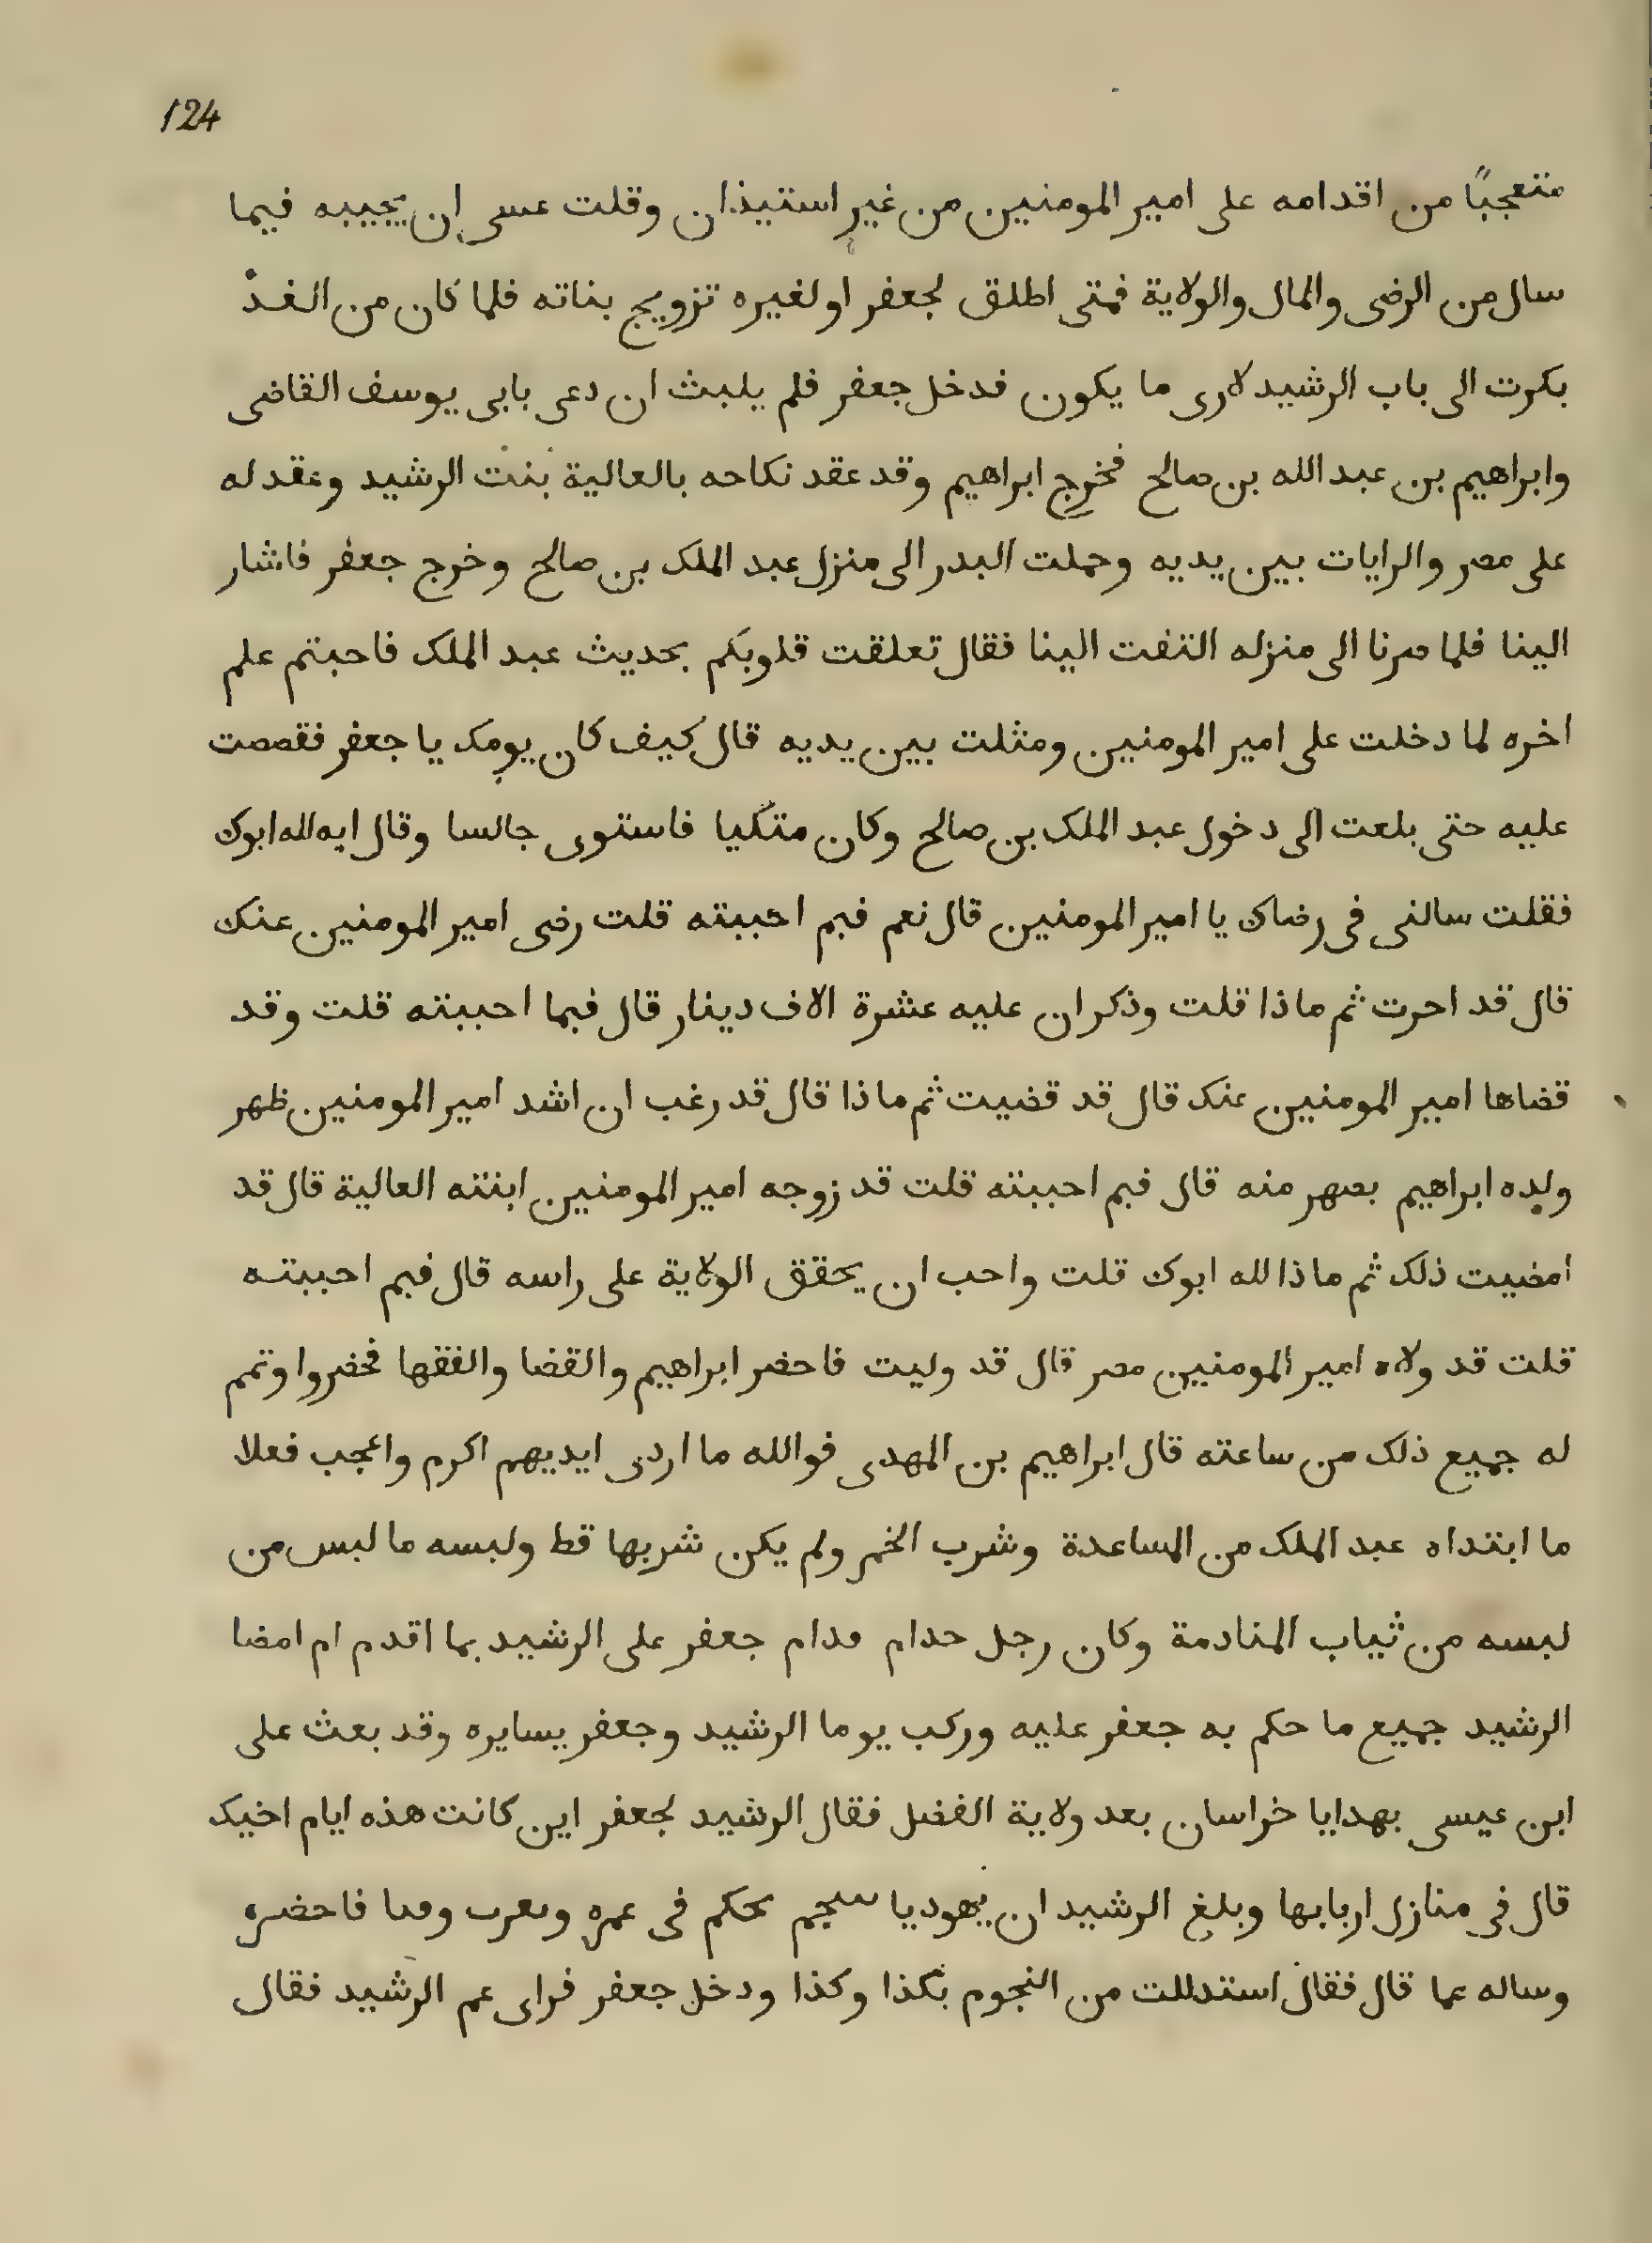 124
متعجبًا من اقدامه على امير المومنين من غير استيذان وقلت عسى ان يجيبه فيما
سال من الرضى والمال والولاية فمتى اطلق لجعفر او لغيره تزويج بناته فلما كان من الغد
بكرت الى باب الرشيد لارى ما يكون فدخل جعفر فلم يلبث ان دعى بابى يوسف القاضى
وابراهيم بن عبد الله بن صالح فخرج ابراهيم وقد عقد نكاحه بالعالية بنت الرشيد وعقد له
على مصر والرايات بين يديه وحملت البدر الى منزل عبد الملك بن صالح وخرج جعفر فاشار
الينا فلما صرنا الى منزله التفت الينا فقال تعلقت قلوبكم بحديث عبد الملك فاحبتم علم
اخره لما دخلت على امير المومنين ومثلت بين يديه قال كيف كان يومك يا جعفر فقصصت
عليه حتى بلعت الى دخول عبد الملك بن صالح وكان متكيا فاستوى جالسا وقال ايه لله ابوك
فقلت سالنى فى رضاك يا امير المومنين قال نعم فبم احببته قلت رضى امير المومنين عنك
قال قد احرت ثم ماذا قلت وذكر ان عليه عشرة الاف دينار قال فبما احببته قلت وقد
قضاها امير المومنين عنك قال قد قضيت ثم ماذا قال قد رغب ان اشد امير المومنين ظهر
ولده ابراهيم بصهر منه قال فبم احببته قلت قد زوجه امير المومنين ابنته العالية قال قد
امضيت ذلك ثم ماذا لله ابوك قلت واحب ان يحقق الولاية على راسه قال فبم احببته
قلت قد ولاه امير المومنين مصر قال قد وليت فاحضر ابراهيم والقضا والفقها فحضروا وتمم
له جميع ذلك من ساعته قال ابراهيم بن المهدى فوالله ما اردى ايديهم اكرم واعجب فعلا
ما ابتداه عبد الملك من المساعدة وشرب الخمر ولم يكن شربها قط ولبسه ما لبس من
لبسه من ثياب المنادمة وكان رجل حدام مدام جعفر على الرشيد بما اقدم ام امضا
الرشيد جميع ما حكم به جعفر عليه وركب يوما الرشيد وجعفر يسايره وقد بعث على
ابن عيسى بهدايا خراسان بعد ولاية الفضل فقال الرشيد لجعفر اين كانت هذه ايام اخيك
قال فى منازل اربابها وبلغ الرشيد ان يهوديا يحكم فى عمره فاحضره
وساله عما قال فقال استدللت من النجوم بكذا وكذا ودخل جعفر فراى عم الرشيد فقال